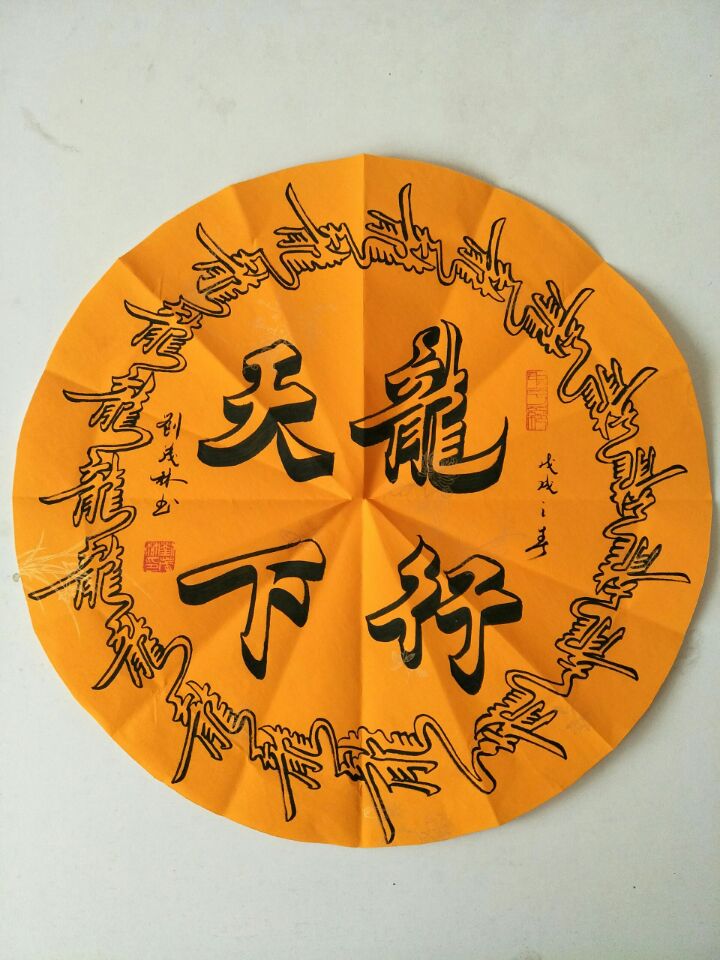 戊戌之春
龍行
天下
刘茂林书
龍龍龍龍龍龍龍龍龍龍龍龍龍龍龍龍龍龍